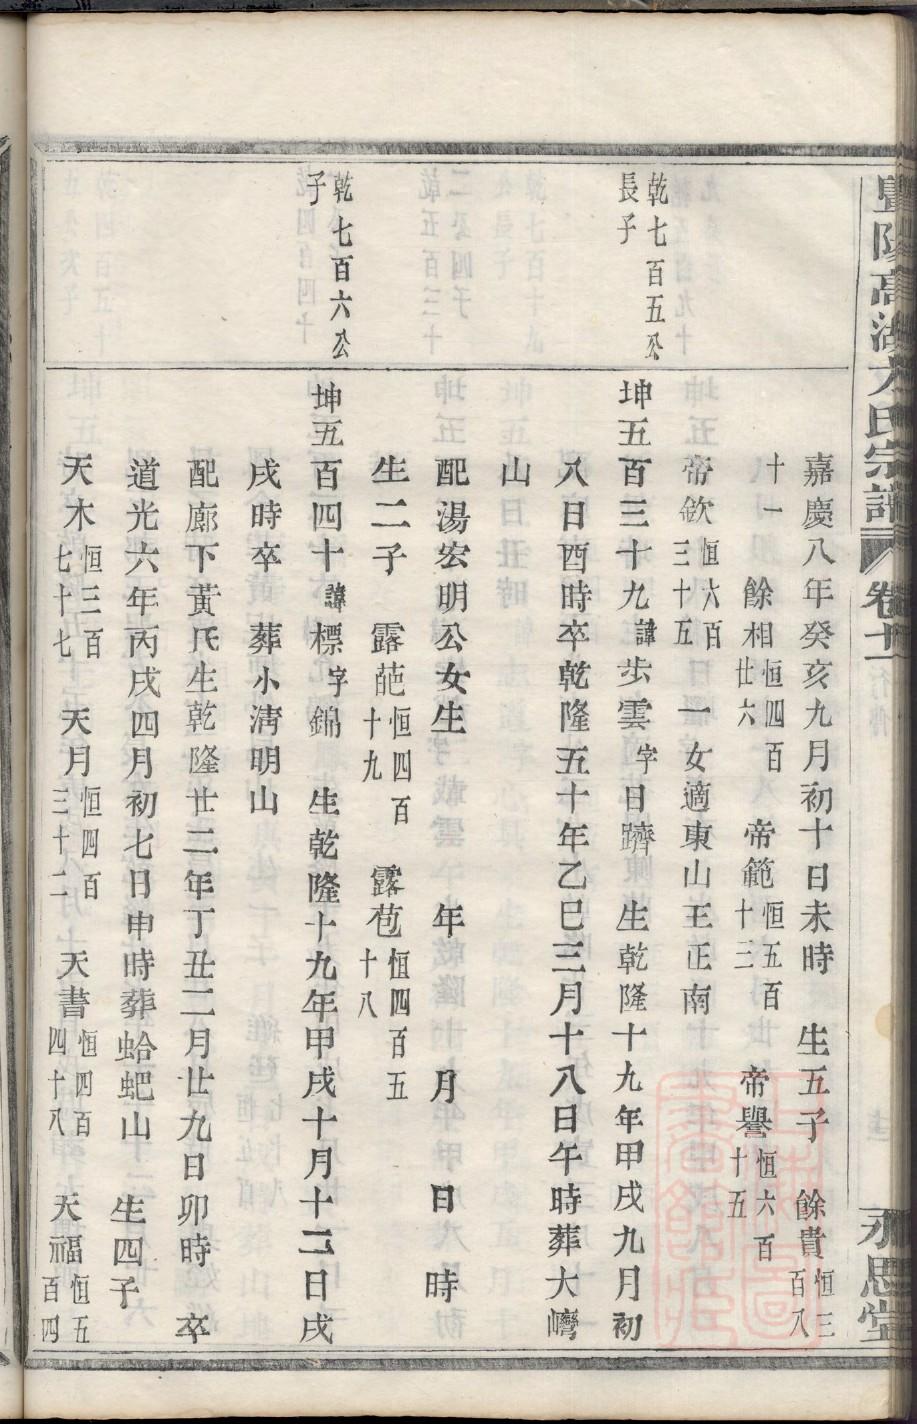 暨陽高湖方氏宗譜 卷十一 行傳 永思堂
嘉慶八年癸亥九月初十日未時 生五子 餘貴恒三百八
十一 餘相恒四百廿六 帝範恒五百十三 帝譽恒六百十五
帝欽恒六百三十五 一女適東山王正南
乾七百五公長子
坤五百三十九諱步雲字日躋 生乾隆十九年甲戌九月初
八日酉時卒乾隆五十年乙巳三月十八日午時葬大嶹
山
配湯宏明公女生 年 月 日 時
生二子 露葩恒四百十九 露苞恒四百五十八
乾七百六公子
坤五百四十諱標字錦 生乾隆十九年甲戌十月十二日戌
戌時卒 葬小淸明山
配廊下黃氏生乾隆廿二年丁丑二月廿九日卯時 卒
道光六年丙戌四月初七日申時葬蛤蚆山 生四子
天木恒三百七十七 天月恒四百三十二 天書恒四百四十八 天福恒五百四